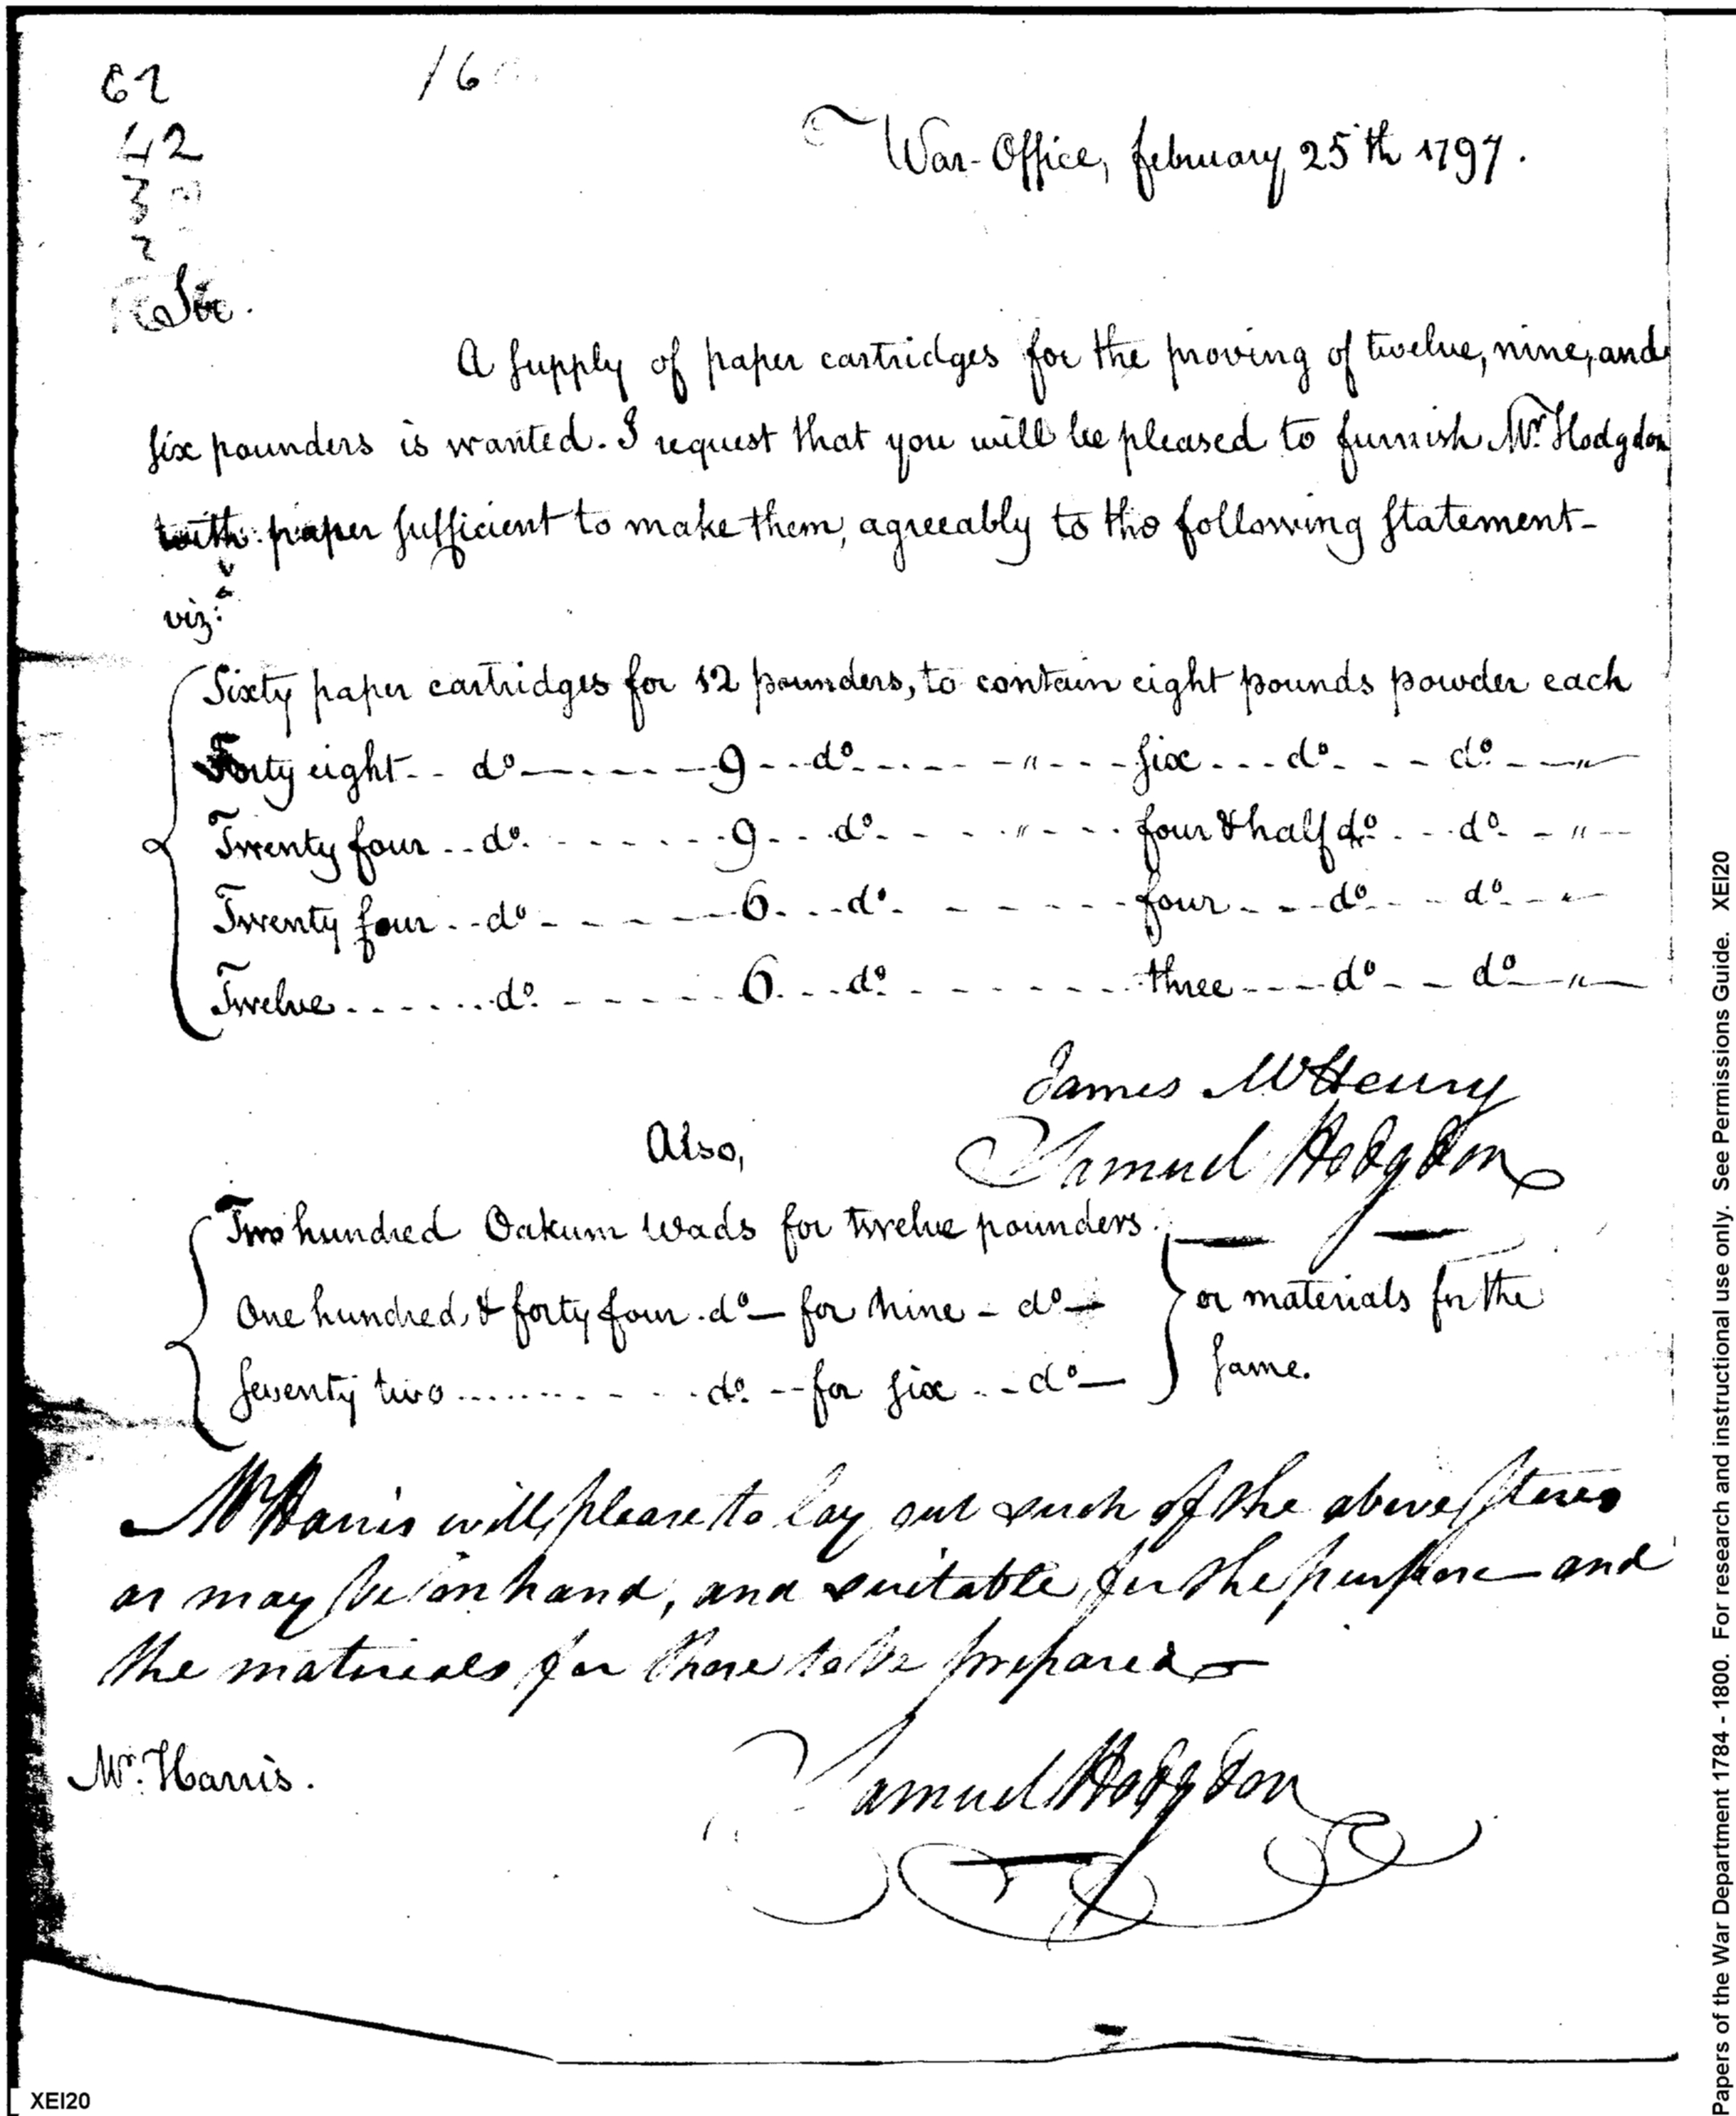 62
16
42
3
2
War-Office, february 25th 1797.
Sir.
A supply of paper cartridges for the proving of twelve, nine, and
six pounders is wanted. I request that you will be pleased to furnish Mr. Hodgdon
with paper sufficient to make them, agreeably to the following statement-
viz:
Sixty paper cartridges for 12 pounders, to contain eight pounds powder each
Forty eight-- do------9---do.----"---six---do.---do.---"
Twenty four..do.------9---do.---"---four & half do...do.--"--
Twenty four..do------6---do.------four---do---do.--"
Twelve......do.------6---do.------three----do---do--"--
James McHenry
Samuel Hodgdon
Also,
Two hundred Oakum wads for twelve pounders.
One hundred & forty four.do- for nine - do-
or materials for the
seventy two.......do.--for six..-do-
same.
Mr Harris will please to lay out such of the above stores
as may be on hand, and suitable for the purpose - and
the materials for those to be prepared -
Samuel Hodgdon
Mr. Harris.
XEI20
Papers of the War Department 1784 - 1800. For research and instructional use only. See Permissions Guide. XEI20